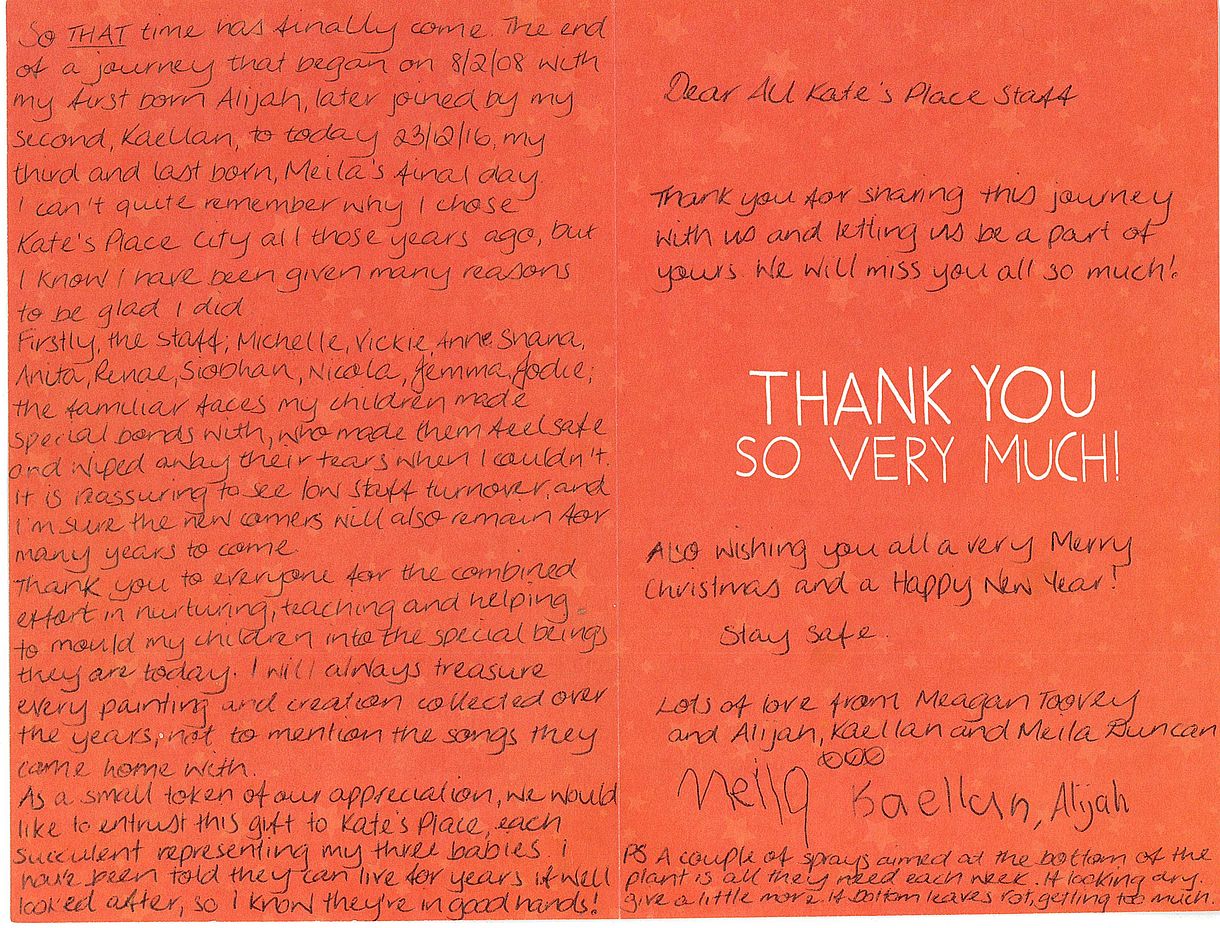 So THAT time has finally come. The end
of a journey that began on 8/2/08 with
my first born Alijah, later joined by my
second, Kaellan, to today 23/12/16, my
third and last born, Meila's final day
I can't quite remember why I chose
Kate's Place City all those years ago, but
I know I have been given many reasons
to be glad I did
Firstly, the staff; Michelle, Vickie, Anne, Shana,
Anita, Renae, Siobhan, Nicola, Jemma, Jodie;
the familiar faces my children made
special bonds with, who made them feel safe
and wiped away their tears when I couldn't.
It is reassuring to see low staff turnover, and
I'm sure the new comers will also remain for
many years to come.
Thank you to everyone for the combined
effort in nurturing, teaching and helping
to mould my children into the special beings
they are today. I will always treasure
every painting and creation collected over
the years, not to mention the songs they
came home with.
As a small token of our appreciation, we would
like to entrust this gift to Kate's Place, each
succulent representing my three babies. I
have been told they can live for years if well
looked after, so I know they're in good hands!
Dear All Kate's Place Staff
Thank you for sharing this journey
with us and letting us be a part of
yours. We will miss you all so much!
THANK YOU
SO VERY MUCH!
Also wishing you all a very Merry
Christmas and a Happy New Year!
Stay safe.
Lots of love from Meagan Toovey
and Alijah, Kaellan and Meila Duncan
Meila Kaellan, Alijah
PS A couple of sprays aimed at the bottom of the
plant is all they need each week. If looking dry.
give a little more. If bottom leaves rot, getting too much.